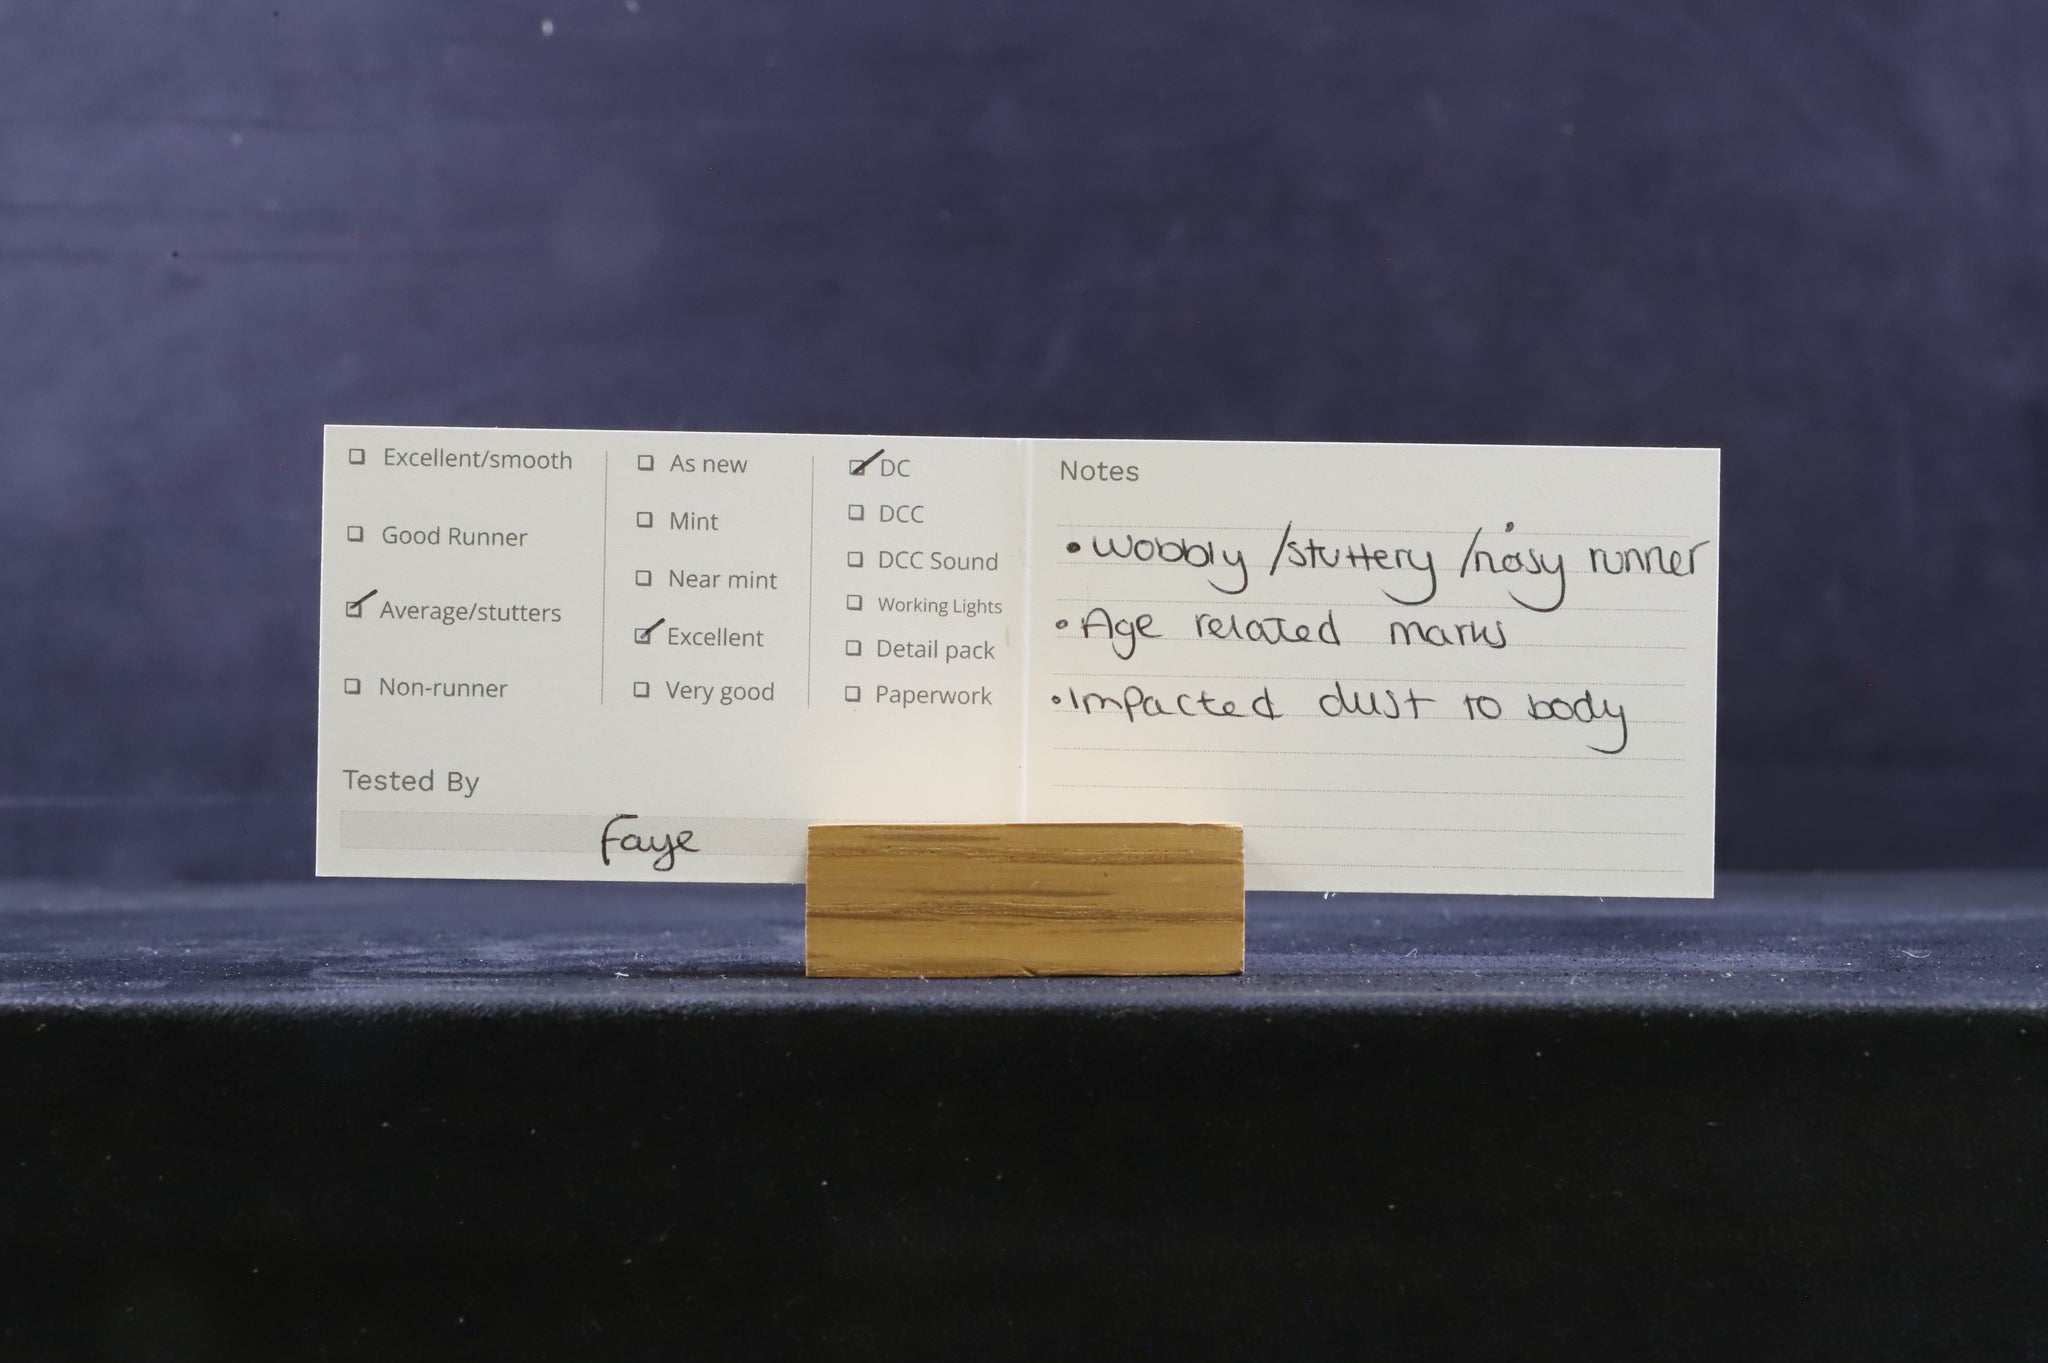 ☐ Excellent/smooth
☐ Good Runner
☑ Average/stutters
☐ Non-runner
☐ As new
☐ Mint
☐ Near mint
☑ Excellent
☐ Very good
☑ DC
☐ DCC
☐ DCC Sound
☐ Working Lights
☐ Detail pack
☐ Paperwork
Tested By
Faye
Notes
• Wobbly /stuttery /noisy runner
• Age related marks
• Impacted dust to body